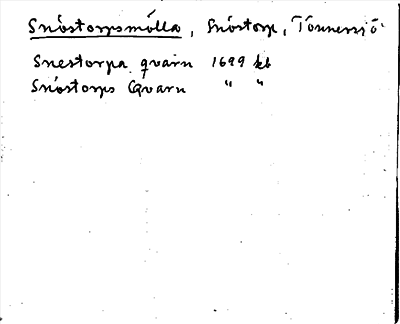 Snöstorpsmölla, Snöstorp, Tönnersjö
Snestorpa qvarn 1699 kb
Snöstorps Qvarn " "